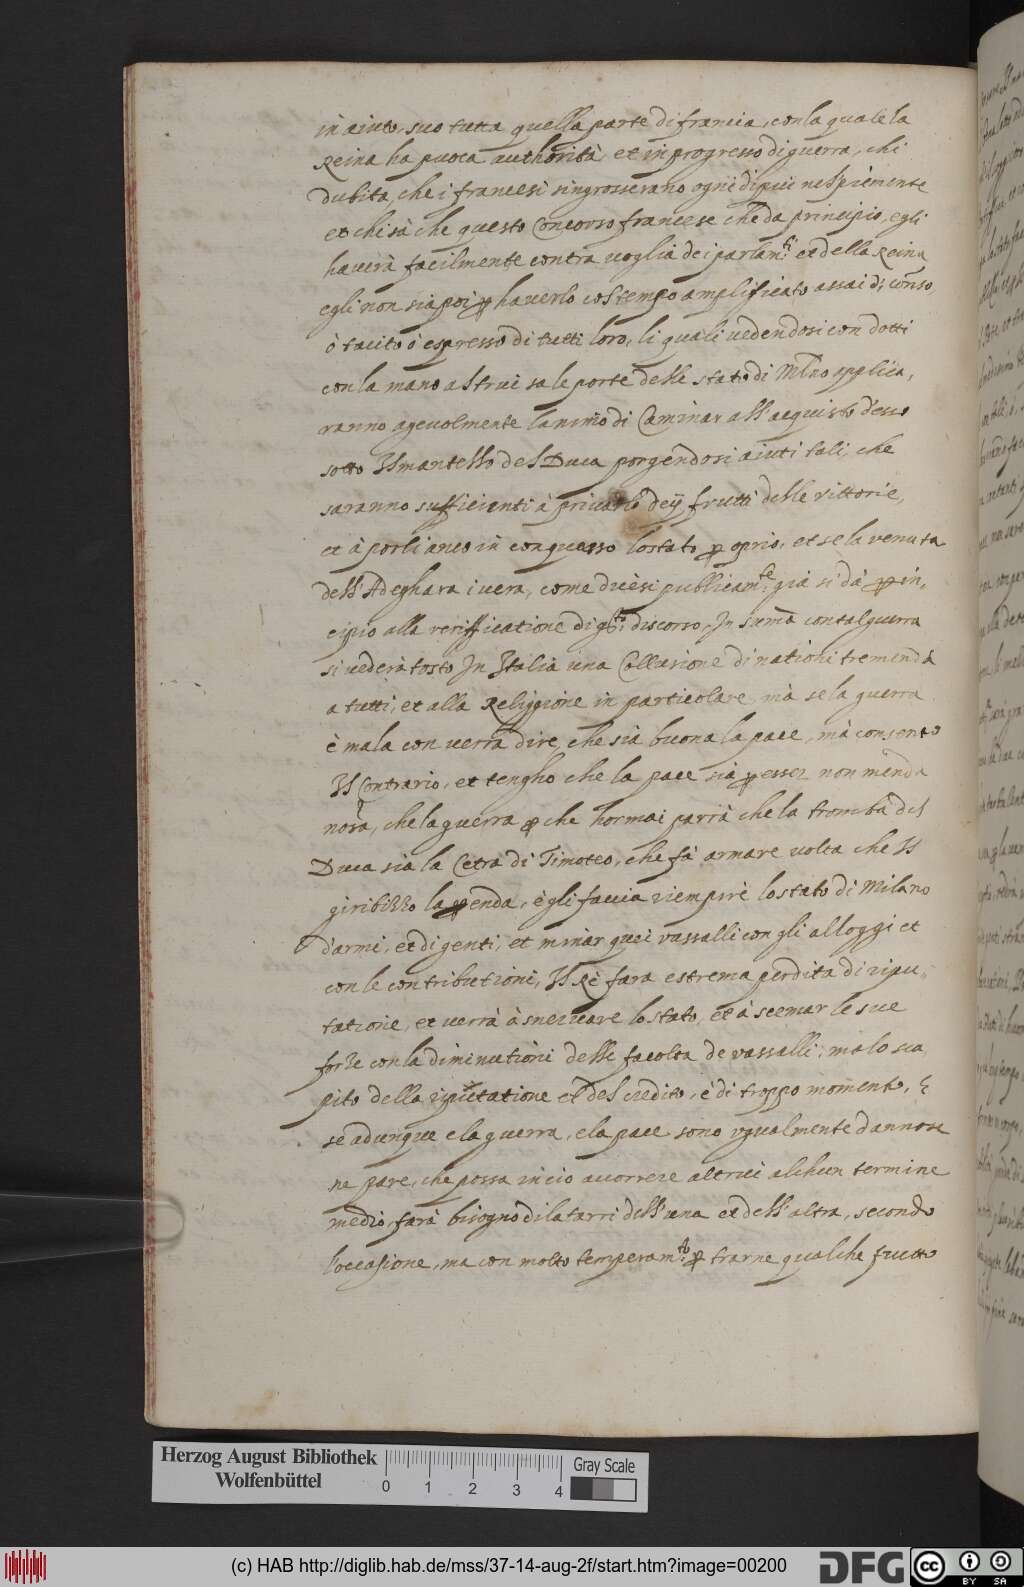 in aiuto suo tutta quella parte di francia, con la quale la
Reina ha puoca authorità, et in progresso di guerra, chi
dubita, che i francesi s'ingrosserano ogni dì più nel piemonte
et chi sà che questo Concorso francese che da principio, egli
haverà facilmente contra voglia dei parlam.ti et della Reina
egli non sia poi p haverlo col tempo amplificato assai di conso,
ò tacito ò espresso di tutti loro, li quali vedendosi condotti
con la mano altrui sù le porte delle stato di Mlno applica,
ranno agevolmente l'animo di Caminar all'acquisto d'esso
sotto Il mantello del Duca porgendosi aiuti tali, che
saranno sufficienti à privarlo deij frutti delle vittorie,
et à porli anco in conquasso lo stato proprio, et se la venuta
dell'Adeghara i vera, come dicesi publicam.te già si dà prin,
cipio alla verifficatione di q.to discorso, In sumà con tal guerra
si vederà tosto In Italia una Collusione di nationi tremenda
a tutti, et alla Religgione in particolare, mà se la guerra
è mala converrà dire, che sia buona la pace, mà consento
Il Contrario, et tengho che la pace sia p esser non men da
nosa, che la guerra p che hormai parrà che la tromba del
Duca sia la Cetra di Timoteo, che fà armare volta che Il
giribizzo la prenda, ègli faccia riempire lo stato di Milano
d'armi, et di genti, et minar quei vassalli con gli alloggi et
con le contributioni, Il Rè fara estrema perdita di ripu,
tatione, et verrà à snervare lo stato, et à scemar le sue
forze con la diminutioni delle facolta de vassalli; ma lo sca,
pito della riputatione et del credito, è di troppo momento,
se adunque e la guerra, e la pace sono ugualmente dannose
ne pare, che possa in ciò accorrere altrui alchun termine
medio, farà bisogno dilatarsi dell'una et dell'altra, secondo
l'occasione, ma con molto temperam.to p trarne qualche frutto
Herzog August Bibliothek
Wolfenbüttel
0 1 2 3 4
Gray Scale
(c) HAB http://diglib.hab.de/mss/37-14-aug-2f/start.htm?image=00200
DFG
cc BY SA